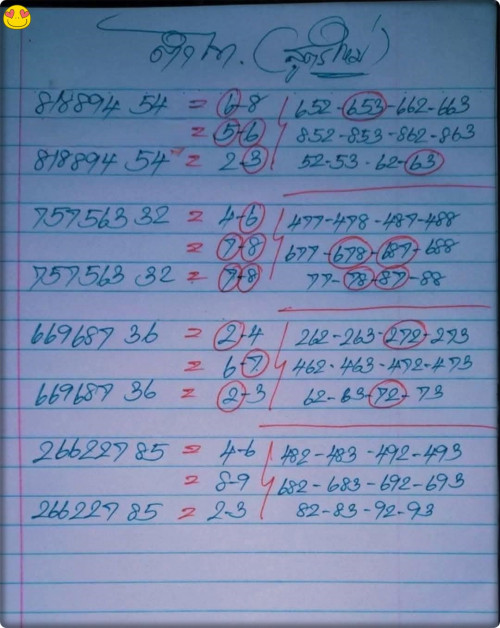 (สูตรใหม่)
818894 54 = 6-8 652-653-662-663
= 5-6 852-853-862-863
818894 54 = 2-3 52-53-62-63
757563 32 = 4-6 477-478-487-488
= 7-8 677-678-687-688
757563 32 = 7-8 77-78-87-88
669687 36 = 2-4 262-263-272-273
= 6-7 462-463-472-473
669687 36 = 2-3 62-63-72-73
266227 85 = 4-6 482-483-492-493
= 8-9 682-683-692-693
266227 85 = 2-3 82-83-92-93